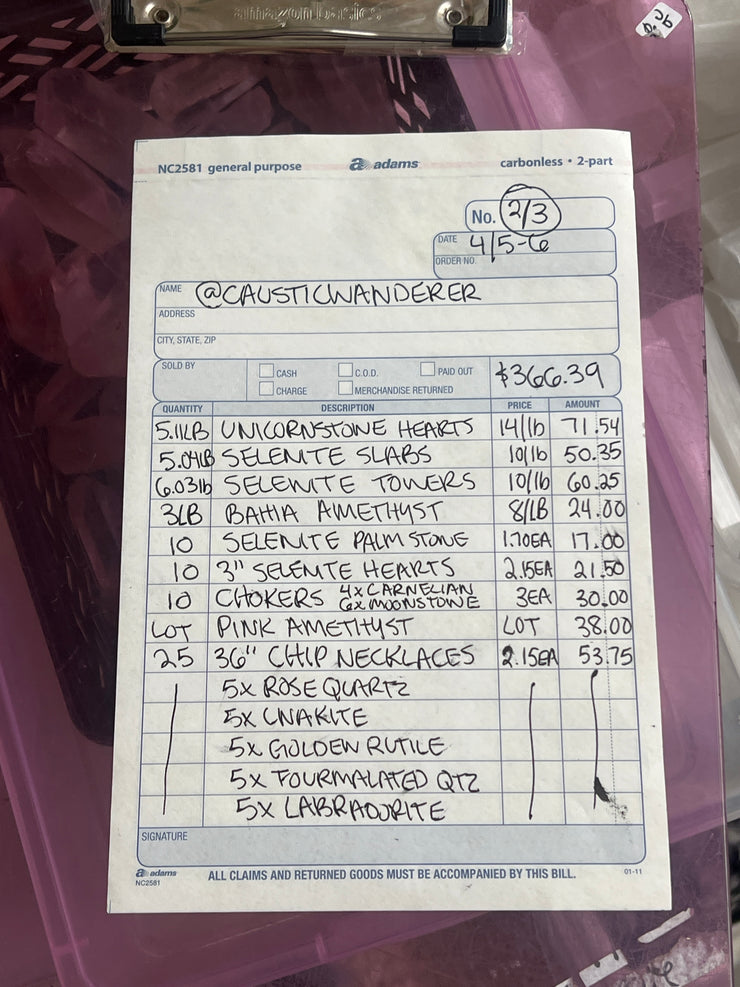 amazon basics
NC2581 general purpose
a adams
carbonless • 2-part
No. 2/3
DATE 4/5-6
ORDER NO.
NAME @CAUSTICWANDERER
ADDRESS
CITY, STATE, ZIP
SOLD BY
CASH
C.O.D.
PAID OUT
CHARGE
MERCHANDISE RETURNED
$366.39
QUANTITY DESCRIPTION PRICE AMOUNT
5.11LB UNICORNSTONE HEARTS 14/lb 71.54
5.04LB SELENITE SLABS 10/lb 50.35
6.03lb SELENITE TOWERS 10/lb 60.25
3LB BAHIA AMETHYST 8/LB 24.00
10 SELENITE PALM STONE 1.70EA 17.00
10 3" SELENITE HEARTS 2.15EA 21.50
10 CHOKERS 4x CARNELIAN 6x MOONSTONE 3EA 30.00
LOT PINK AMETHYST LOT 38.00
25 36" CHIP NECKLACES 2.15EA 53.75
5x ROSE QUARTZ
5x UNAKITE
5x GOLDEN RUTILE
5x TOURMALATED QTZ
5x LABRADORITE
SIGNATURE
a adams
NC2581
ALL CLAIMS AND RETURNED GOODS MUST BE ACCOMPANIED BY THIS BILL.
01-11